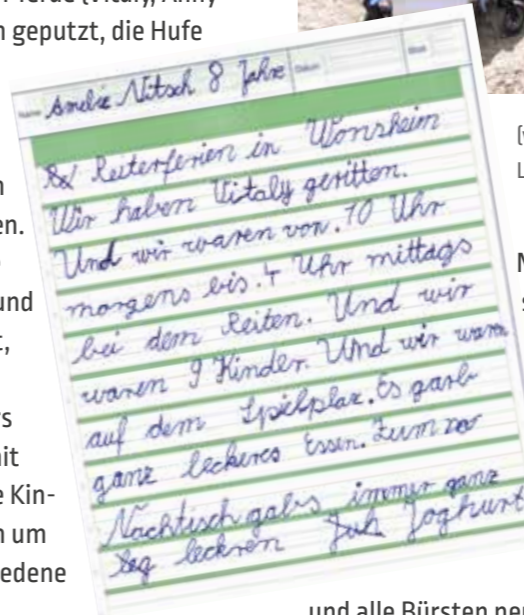 ferde (Vitaly, Anny
n geputzt, die Hufe
n
en.
und
t,
rs
mit
e Kin-
n um
iedene
Name Amelie Nitsch 8 Jahre Datum Blatt
Reiterferien in Wonsheim
Wir haben Vitaly geritten.
Und wir waren von. 10 Uhr
morgens bis. 4 Uhr mittags
bei dem Reiten. Und wir
waren 9 Kinder. Und wir waren
auf dem Spielplaz. Es garb
ganz leckeres Essen. Zum
Nachtisch gabs immer ganz
leckren Joghurt
(v
L
N
s
und alle Bürsten neu